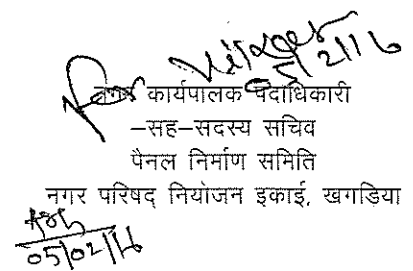 05/2/16
नगर कार्यपालक पदाधिकारी
–सह–सदस्य सचिव
पैनल निर्माण समिति
नगर परिषद् नियोजन इकाई, खगडिया
05/02/16